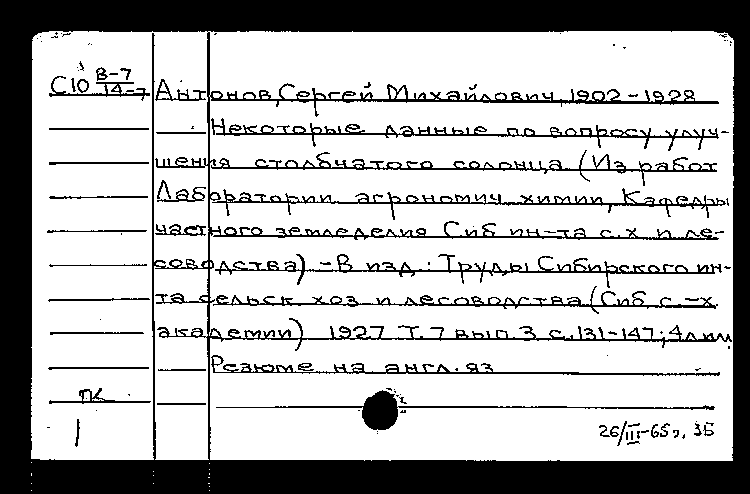 С10 В-7/14-7 Антонов, Сергей Михайлович, 1902-1928
Некоторые данные по вопросу улуч-
шения столбчатого солонца (Из работ
Лаборатории агрономич химии, Кафедры
частного земледелия Сиб ин-та с.х и ле-
соводства) - В изд.: Труды Сибирского ин-
та сельск хоз и лесоводства (Сиб. с.-х
академии) 1927 Т. 7 вып. 3 с. 131-147; 4 лим
Резюме на англ. яз
ПК
1
26/III-65г. 35